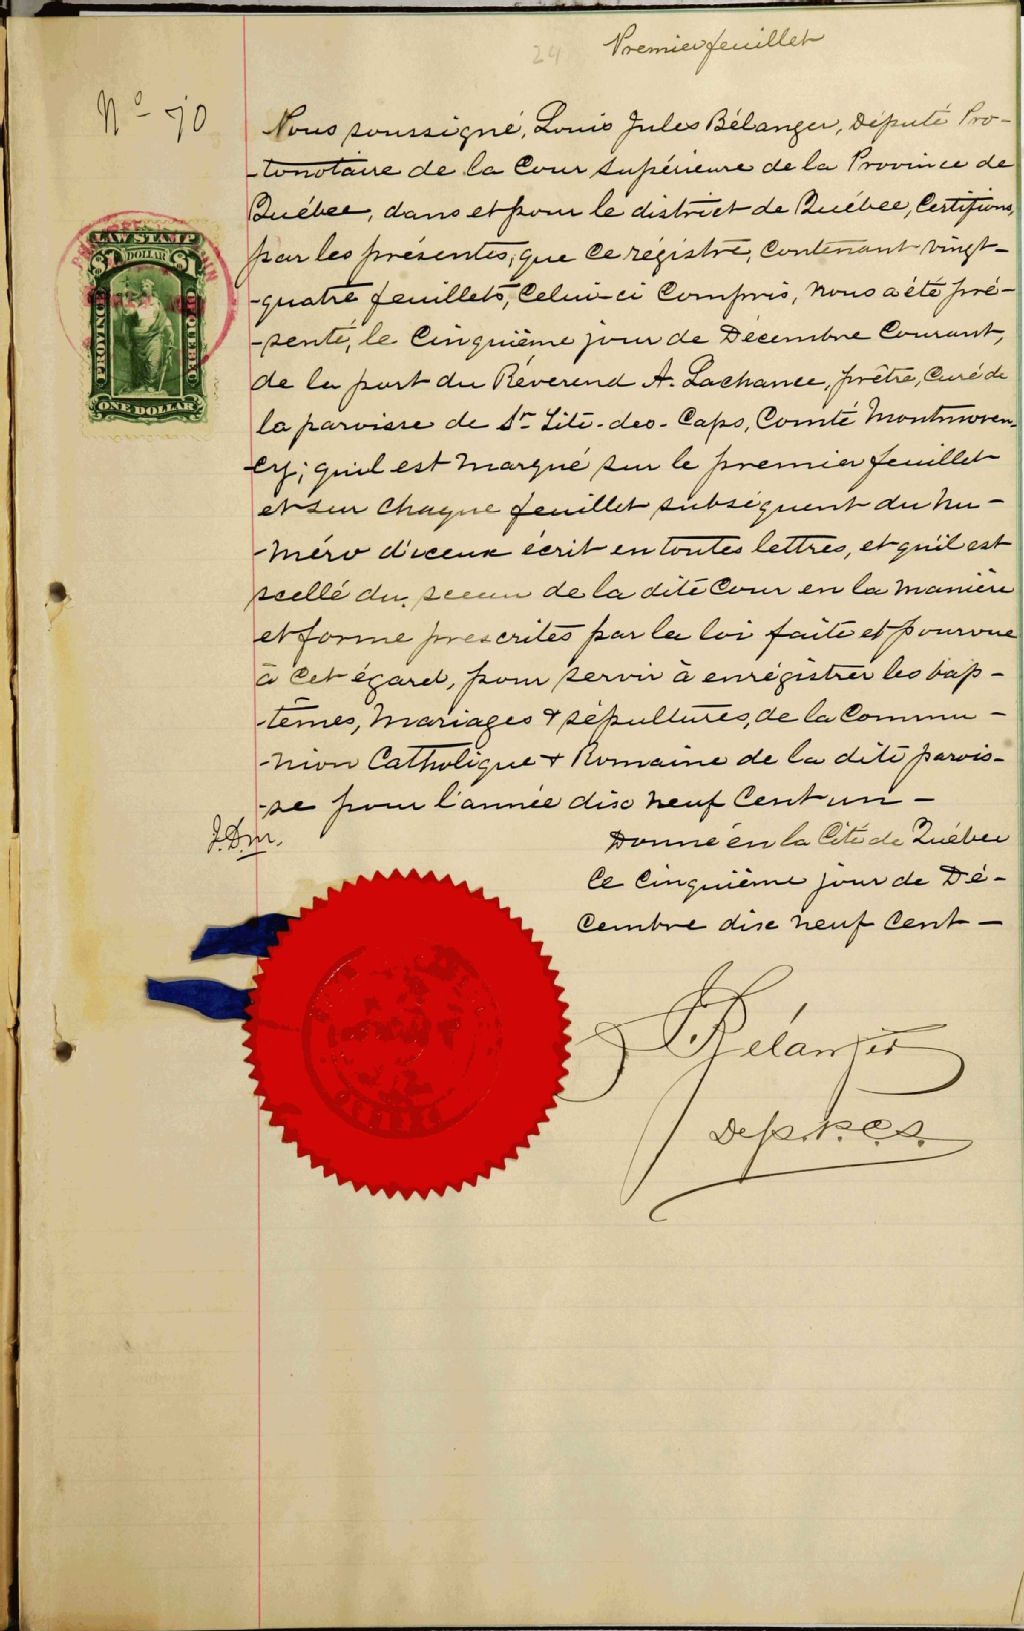 24
Premier feuillet
No 70
Nous soussigné, Louis Jules Bélanger, Député Pro-
-tonotaire de la Cour Supérieure de la Province de
Québec, dans et pour le district de Québec, Certifions,
par les présentes, que ce régistre, contenant vingt-
-quatre feuillets, celui-ci compris, nous a été pré-
-senté, le cinquième jour de Décembre courant,
de la part du Réverend A. Lachance, prêtre, curé de
la paroisse de St. Tite-des-Caps, Comté Montmoren-
-cy; qu'il est marqué sur le premier feuillet
et sur chaque feuillet subséquent du nu-
-méro d'iceux écrit en toutes lettres, et qu'il est
scellé du sceau de la dite Cour en la manière
et forme prescrites par la loi faite et pourvue
à cet égard, pour servir à enrégistrer les bap-
-têmes, mariages & sépultures, de la Commu-
-nion Catholique & Romaine de la dite parois-
-se pour l'année dix neuf cent un -
J.D.m.
Donné en la Cité de Québec
ce cinquième jour de Dé-
cembre dix neuf cent -
Bélanger
Dep. P.C.S.
LAW STAMP
$1 DOLLAR $1
PROVINCE
OF QUEBEC
ONE DOLLAR
QUEBEC